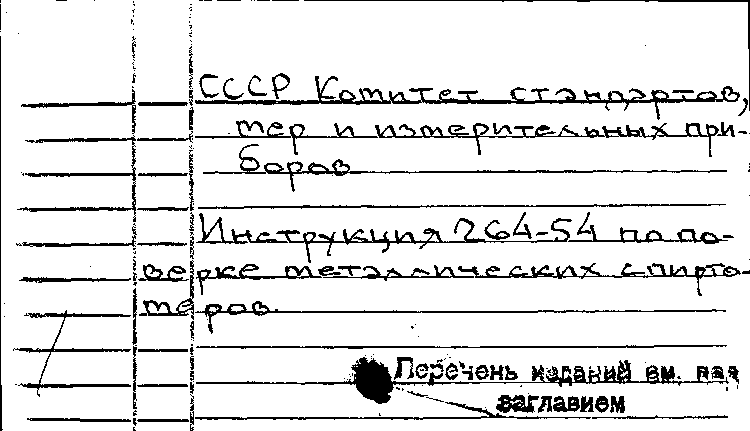 СССР Комитет стандартов,
мер и измерительных при-
боров
Инструкция 264-54 по по-
верке металлических спирто-
меров.
Перечень изданий см. под
заглавием